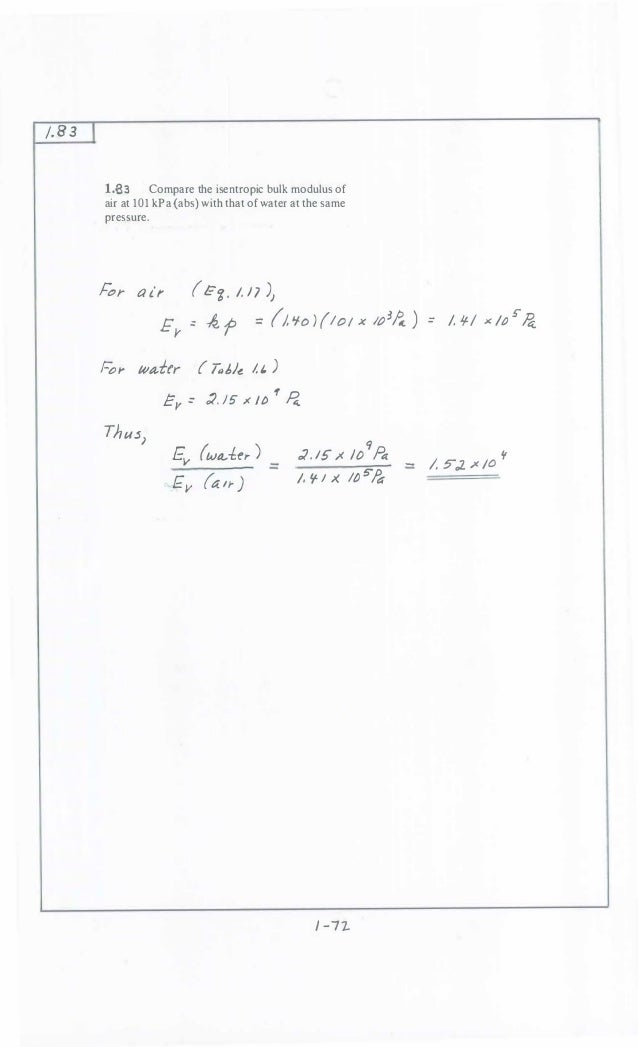 1.83
1.83 Compare the isentropic bulk modulus of
air at 101 kPa (abs) with that of water at the same
pressure.
For air (Eq. 1.17),
Ev = kp = (1.40)(101 x 10³Pa) = 1.41 x 10⁵ Pa
For water (Table 1.6)
Ev = 2.15 x 10⁹ Pa
Thus,
Ev (water) / Ev (air) = 2.15 x 10⁹ Pa / 1.41 x 10⁵ Pa = 1.52 x 10⁴
1-72